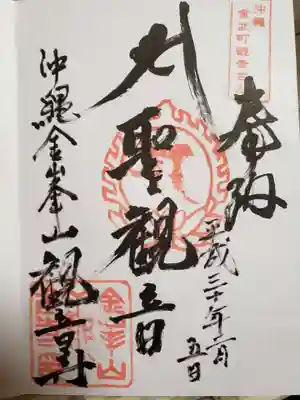 沖縄
金武町観音寺
奉拝
平成三十年
月
五日
聖観音
沖縄金峯山観音寺
金峯山